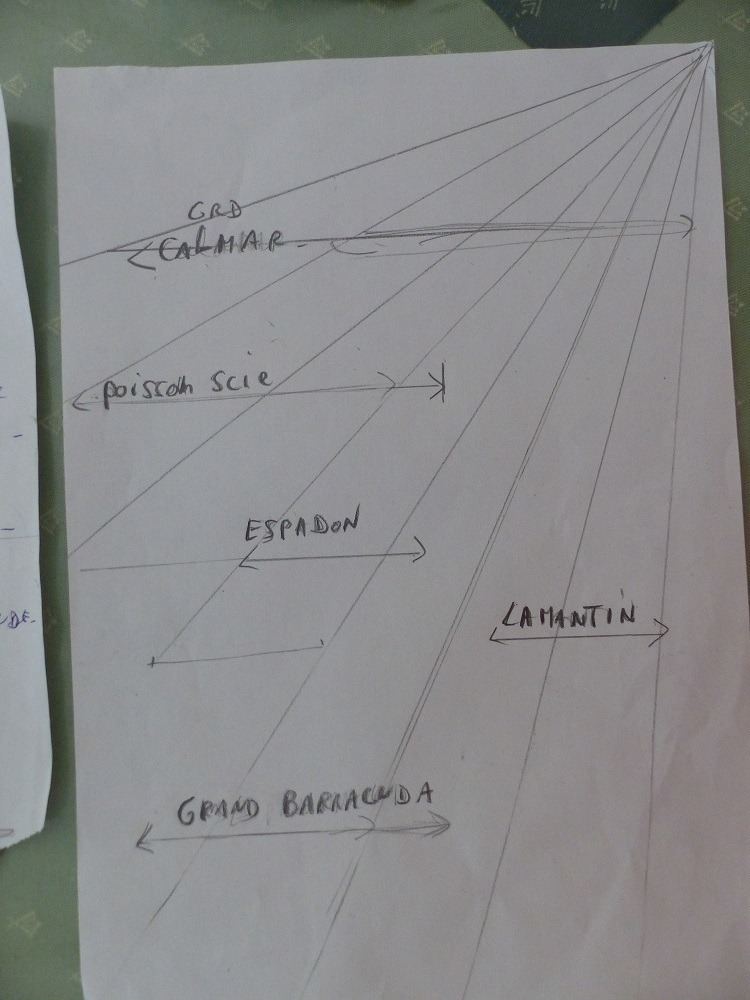 GRD
CALMAR
poisson scie
ESPADON
LAMANTIN
GRAND BARRACUDA